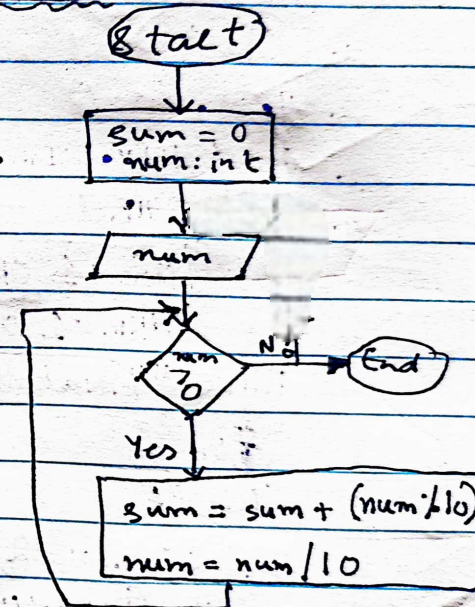 Start
sum = 0
num: int
num
num
>
0
No
End
Yes
sum = sum + (num % 10)
num = num / 10